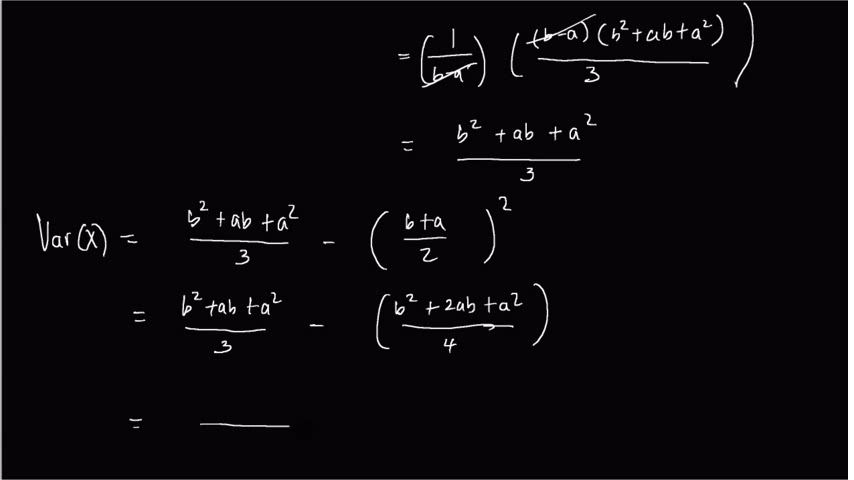 = (1/(b-a)) ((b-a)(b² + ab + a²)/3)
= (b² + ab + a²)/3
Var(X) = (b² + ab + a²)/3 - ((b+a)/2)²
= (b² + ab + a²)/3 - ((b² + 2ab + a²)/4)
=